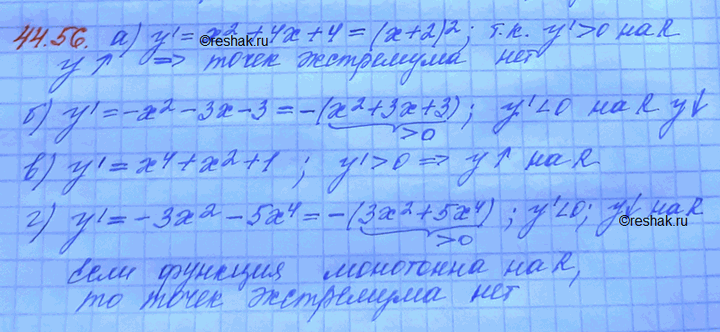 44.56. а) y' = x² + 4x + 4 = (x+2)²; т.к. y' > 0 на R
©reshak.ru
y ↑ => точек экстремума нет
б) y' = -x² - 3x - 3 = -(x² + 3x + 3); y' < 0 на R y↓
>0
в) y' = x⁴ + x² + 1; y' > 0 => y↑ на R
г) y' = -3x² - 5x⁴ = -(3x² + 5x⁴); y' < 0; y↓ на R
©reshak.ru
>0
Если функция монотонна на R,
то точек экстремума нет